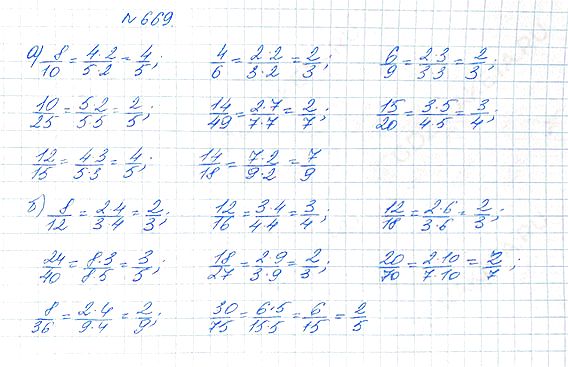 № 669.
а) 8/10 = 4·2/5·2 = 4/5; 4/6 = 2·2/3·2 = 2/3; 6/9 = 2·3/3·3 = 2/3;
10/25 = 5·2/5·5 = 2/5; 14/49 = 2·7/7·7 = 2/7; 15/20 = 3·5/4·5 = 3/4;
12/15 = 4·3/5·3 = 4/5; 14/18 = 7·2/9·2 = 7/9
б) 8/12 = 2·4/3·4 = 2/3; 12/16 = 3·4/4·4 = 3/4; 12/18 = 2·6/3·6 = 2/3;
24/40 = 8·3/8·5 = 3/5; 18/27 = 2·9/3·9 = 2/3; 20/70 = 2·10/7·10 = 2/7;
8/36 = 2·4/9·4 = 2/9; 30/75 = 6·5/15·5 = 6/15 = 2/5